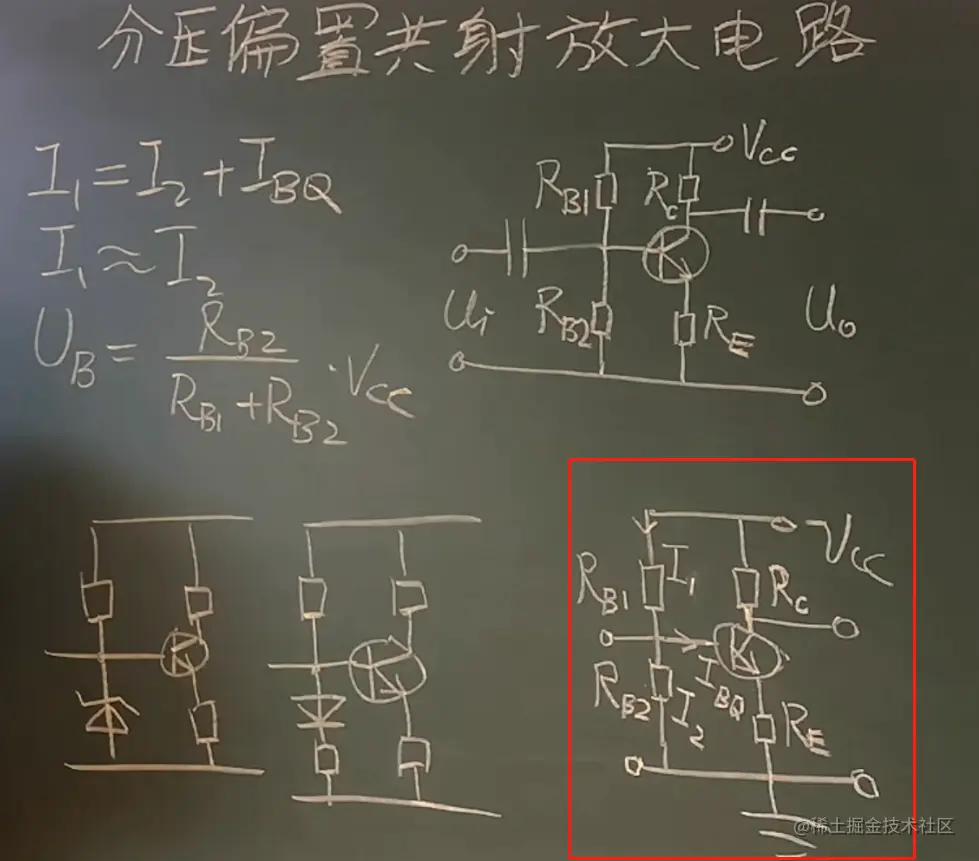 分压偏置共射放大电路
I₁=I₂+I_BQ
I₁≈I₂
U_B= R_B2 / (R_B1+R_B2) ·V_CC
V_CC
R_B1 R_C
U_i R_B2 R_E U_o
V_CC
R_B1 I₁ R_C
R_B2 I₂ I_BQ R_E
@稀土掘金技术社区